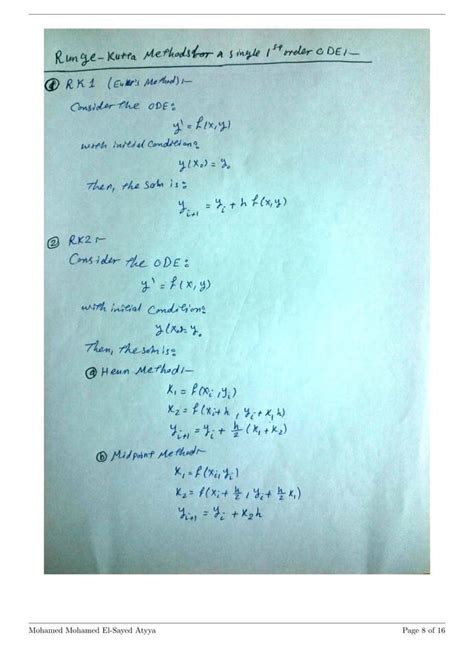 Runge-Kutta Methods for a single 1st order ODE:-
① RK1 (Euler's Method):-
Consider the ODE:
y' = f(x,y)
with initial condition:
y(x₀) = y₀
Then, the soln is:
yᵢ₊₁ = yᵢ + h f(x,y)
② RK2:-
Consider the ODE:
y' = f(x,y)
with initial condition:
y(x₀) = y₀
Then, the soln is:
ⓐ Heun Method:-
K₁ = f(xᵢ, yᵢ)
K₂ = f(xᵢ+h, yᵢ+K₁h)
yᵢ₊₁ = yᵢ + h/2 (K₁+K₂)
ⓑ Midpoint Method:-
K₁ = f(xᵢ, yᵢ)
K₂ = f(xᵢ + h/2, yᵢ + h/2 K₁)
yᵢ₊₁ = yᵢ + K₂h
Mohamed Mohamed El-Sayed Atyya Page 8 of 16